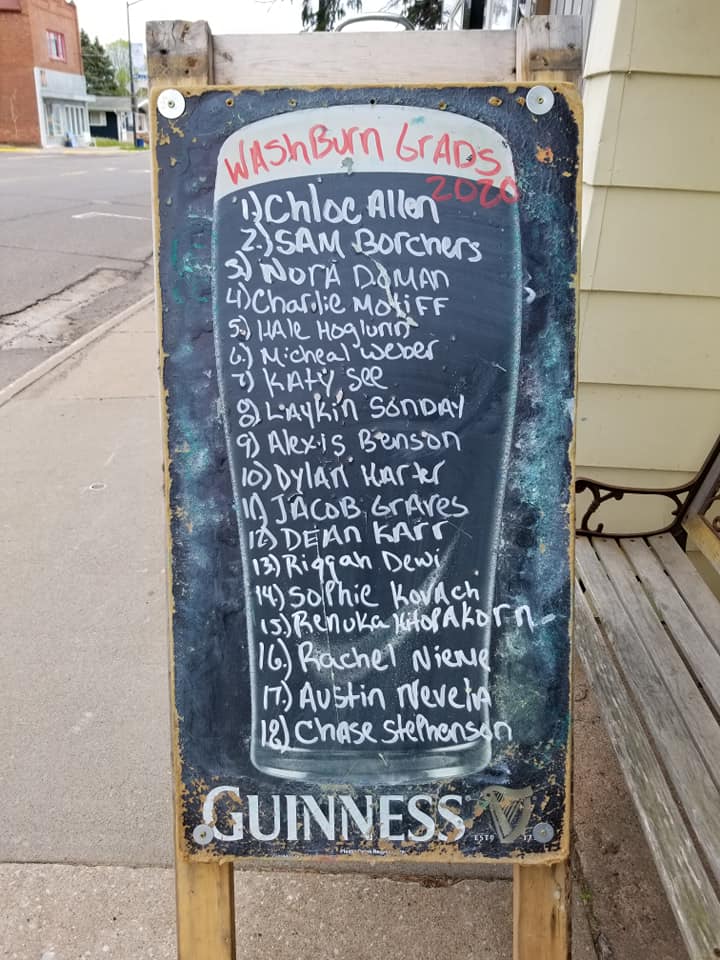 WAShBurn GrADS
2020
1.) Chloe Allen
2.) SAM Borchers
3.) NORA DOMAN
4.) Charlie Motiff
5.) HALe Hoglund
6.) Micheal Weber
7.) KATY See
8.) LAYKin SONDAY
9.) Alexis Benson
10.) DYLAN HARter
11.) JACOB GrAves
12.) DEAN KARR
13.) Riggah Dewi
14.) SOPHie KovAch
15.) Renuka KHOPAKorn-
16.) Rachel Nieme
17.) AUStin NeveLA
18.) ChASe StePhenson
GUINNESS
ESTD 17